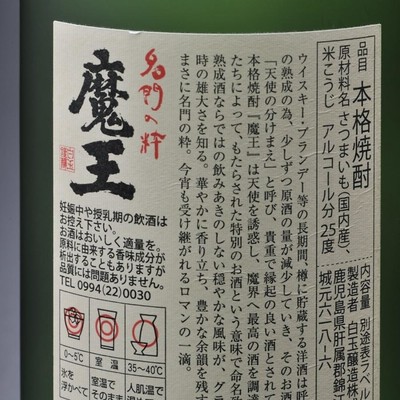 品目 本格焼酎
原材料名 さつまいも(国産)、
米こうじ アルコール分 25度
内容量 別途表ラベル
製造者 白玉醸造株
鹿児島県肝属郡錦江
城元六一八‐六
ウイスキー・ブランデー等の長期間、樽に貯蔵する洋酒は呼
の熟成の為、少しずつ原酒の量が減少していき、そのお酒
「天使の分けまえ」と呼び、貴重で縁起の良い酒とされて
本格焼酎『魔王』は天使を誘惑し、魔界へ最高の酒を調達
たちによって、もたらされた特別のお酒という意味で命名致
熟成酒ならではの飲みあきのしない穏やかな風味が、グラ
時の雄大さを知る。華やかに香り立ち、豊かな余韻を残す
まさに名門の粋。今宵も受け継がれるロマンの一滴。
名門の粋
魔王
妊娠中や授乳期の飲酒は
お控え下さい。
お酒はおいしく適量を。
原料に由来する香味成分が
析出することもありますが
品質には問題ありません。
TEL 0994(22)0030
0~5℃ 室温 35~40℃
氷を 室温で 人肌温で
浮かべて そのまま